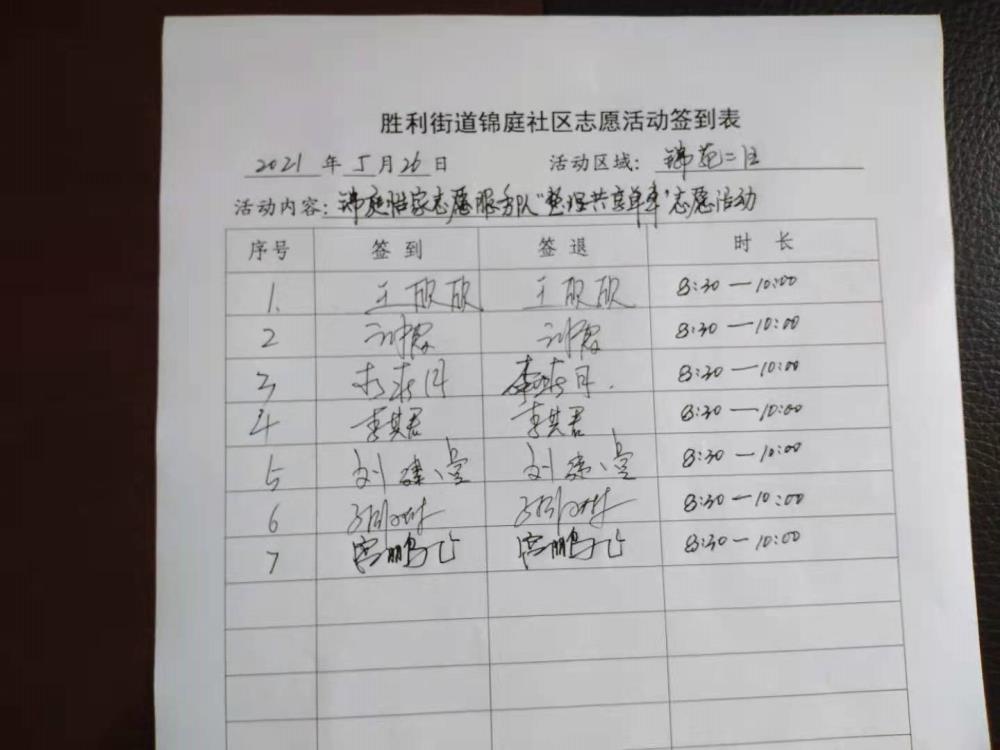 胜利街道锦庭社区志愿活动签到表
2021 年 5 月 26 日 活动区域: 锦苑二区
活动内容: 锦庭 家志愿服务队“整理共享单车”志愿活动
序号 签到 签退 时 长
1. 王欣欣 王欣欣 8:30—10:00
2 8:30—10:00
3 8:30—10:00
4 李其君 李其君 8:30—10:00
5 刘建 刘建 8:30—10:00
6 8:30—10:00
7 宫鹏飞 宫鹏飞 8:30—10:00